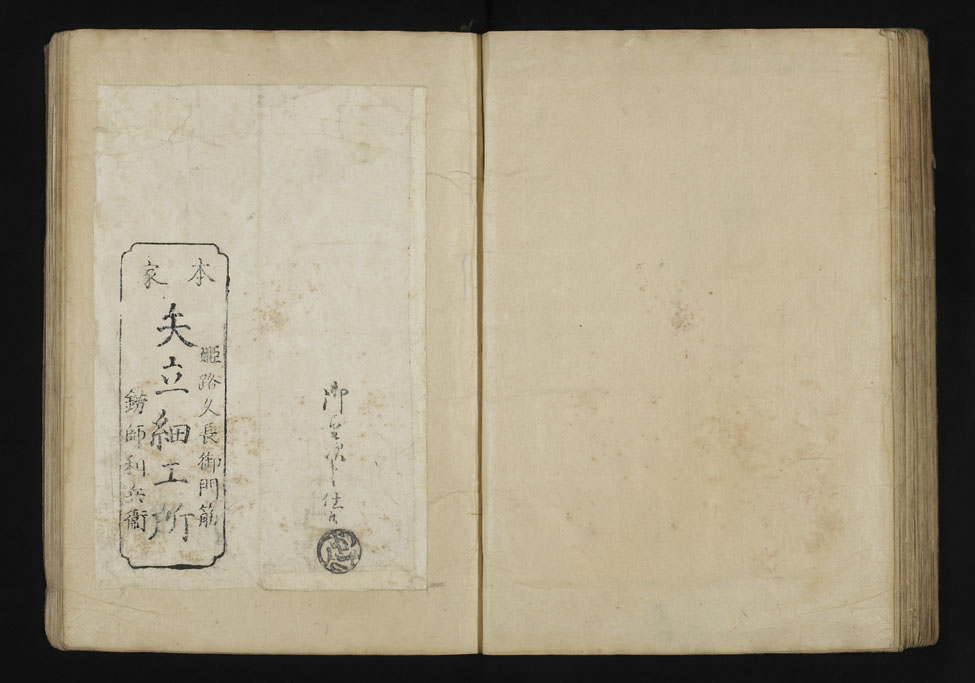 本家
姫路久長御門筋
矢立細工所
錺師利兵衛